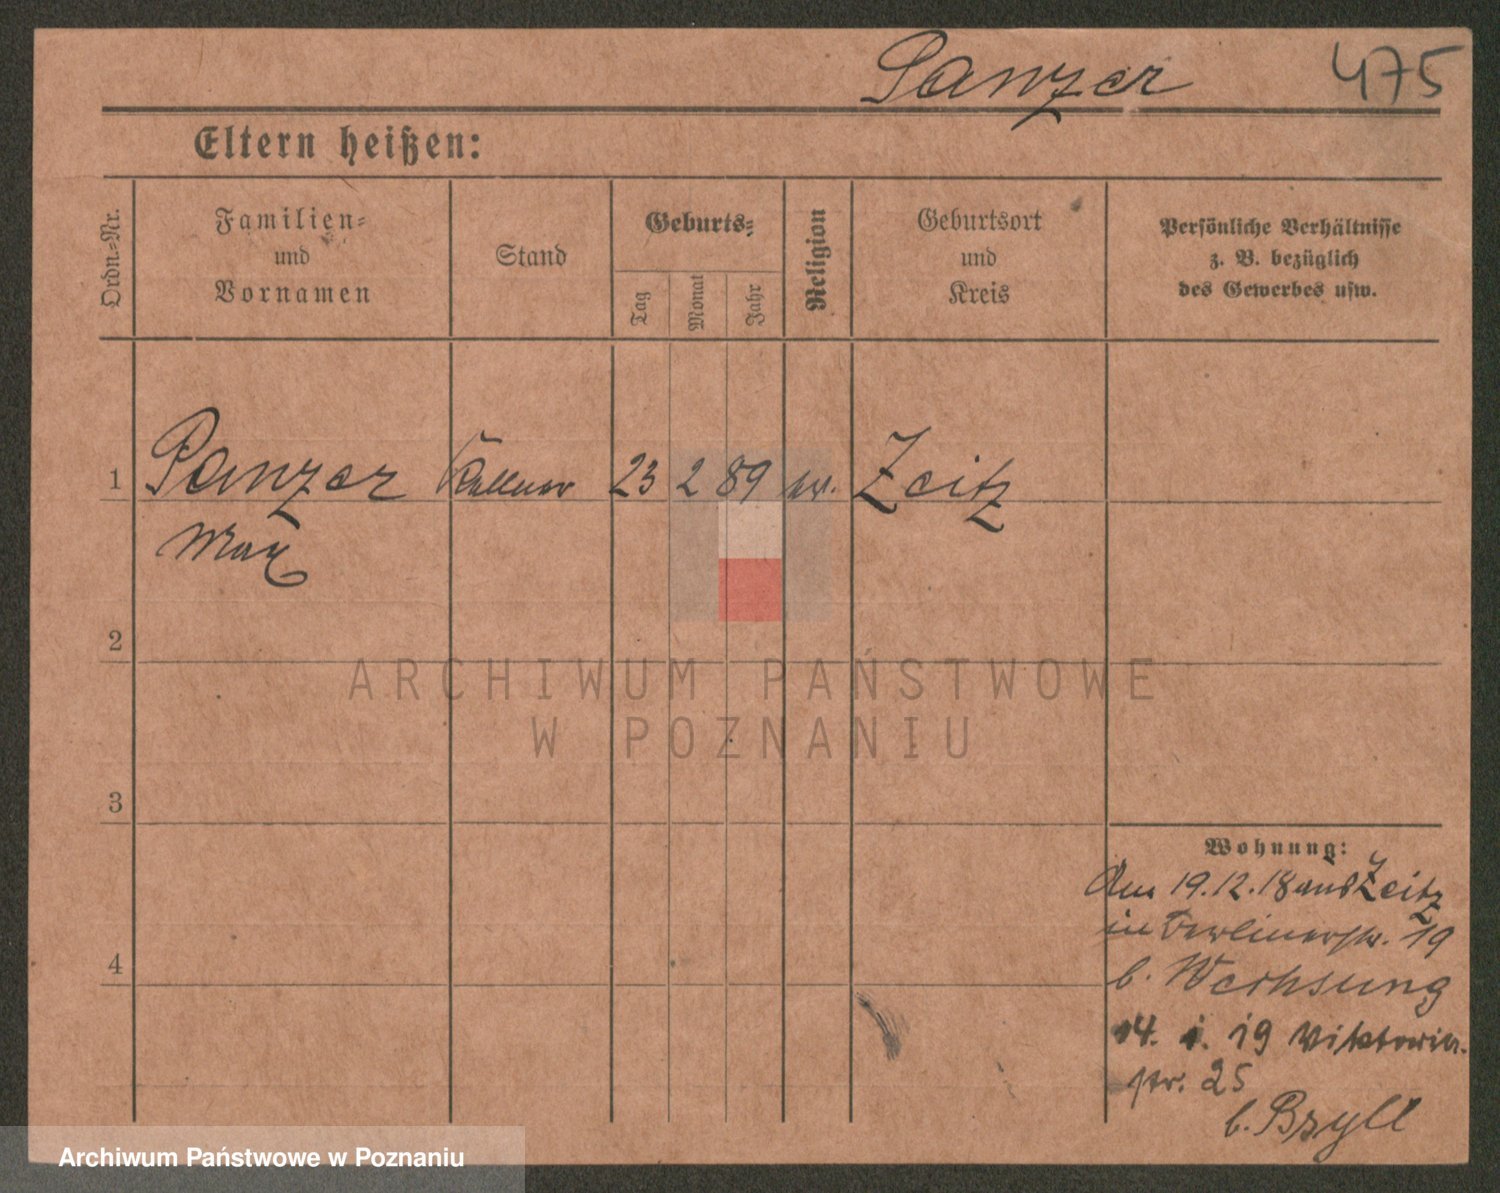 Panzer 475
Eltern heißen:
Ordn.-Nr.
Familien-
und
Vornamen
Stand
Geburts-
Tag
Monat
Jahr
Religion
Geburtsort
und
Kreis
Persönliche Verhältnisse
z. B. bezüglich
des Gewerbes usw.
1 Panzer Kellner 23 2 89 ev. Zeitz
Max
2
3
4
Wohnung:
Am 19.12.18 aus Zeitz
in Berlinerstr. 19
b. Wechsung
14. 1. 19 Viktoria-
str. 25
b. Bzyll
ARCHIWUM PAŃSTWOWE
W POZNANIU
Archiwum Państwowe w Poznaniu